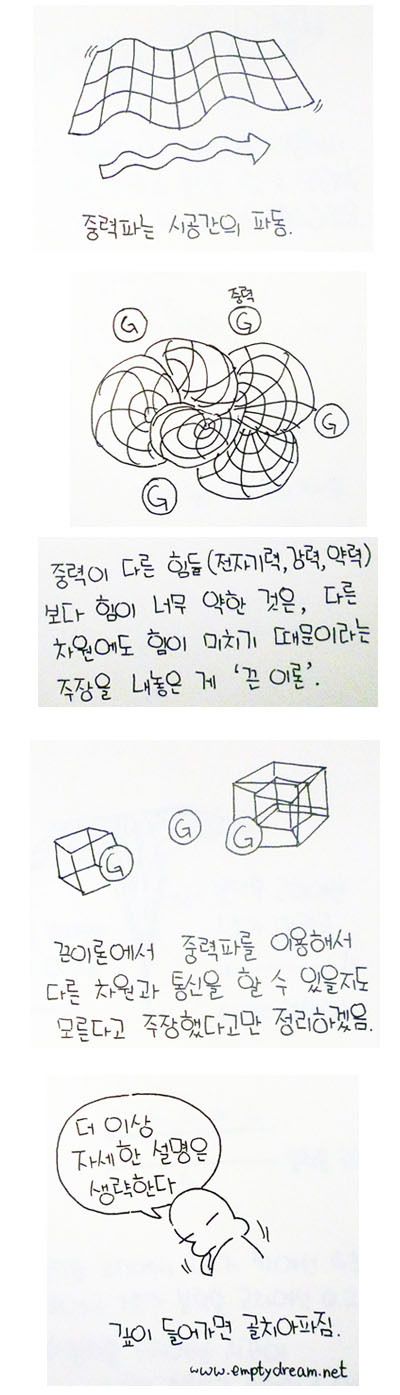 중력파는 시공간의 파동.
중력
G
G
G
G
중력이 다른 힘들(전자기력,강력,약력)
보다 힘이 너무 약한 것은, 다른
차원에도 힘이 미치기 때문이라는
주장을 내놓은 게 '끈 이론'.
G
G
G
끈이론에서 중력파를 이용해서
다른 차원과 통신을 할 수 있을지도
모른다고 주장했다고만 정리하겠음.
더 이상
자세한 설명은
생략한다
깊이 들어가면 골치아파짐.
www.emptydream.net